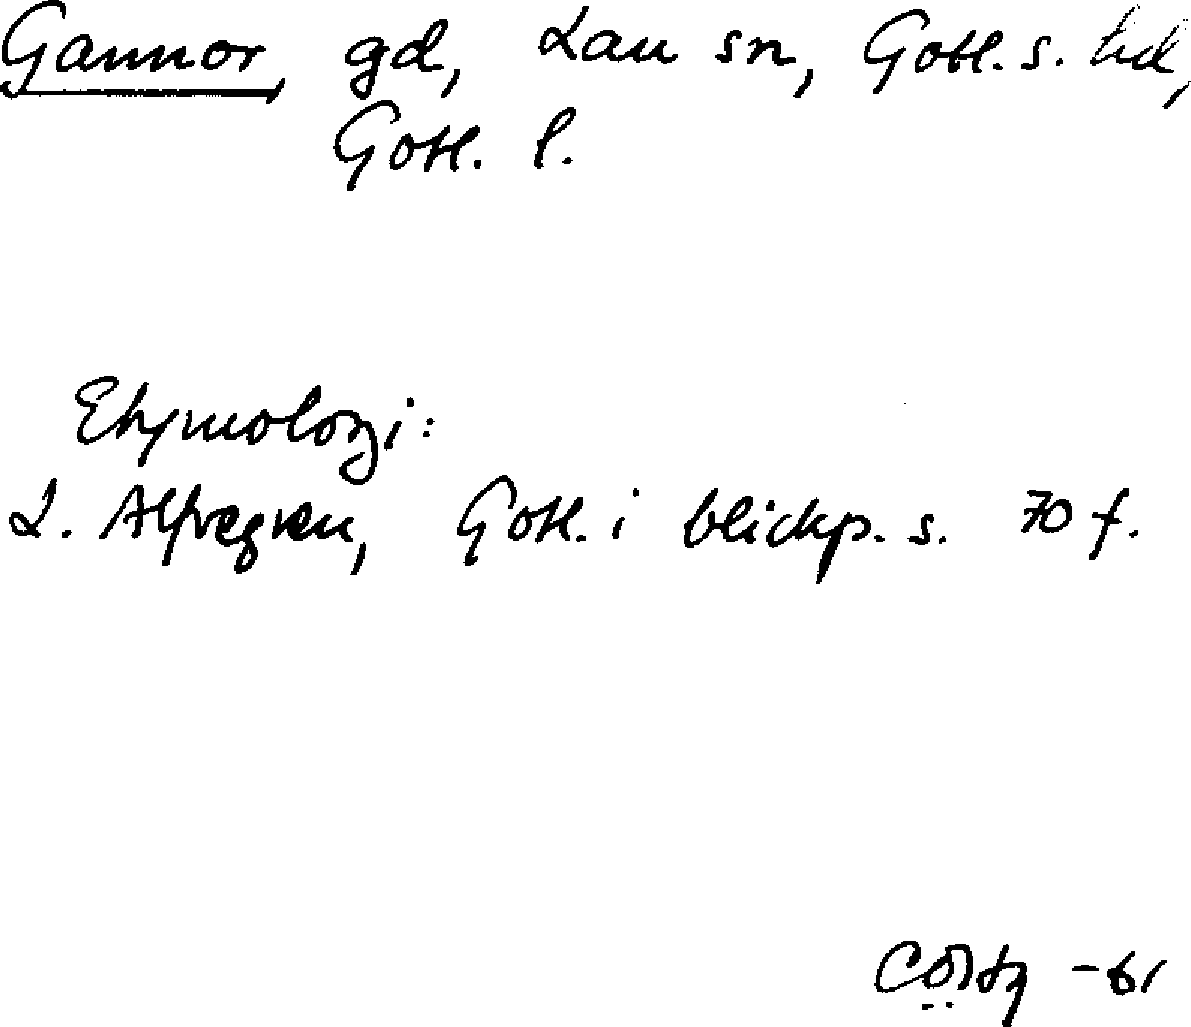 Gannor, gd, Lau sn, Gotl. s. hd,
Gotl. l.
Etymologi:
L. Alfvegren, Gotl. i blickp. s. 70 f.
-61